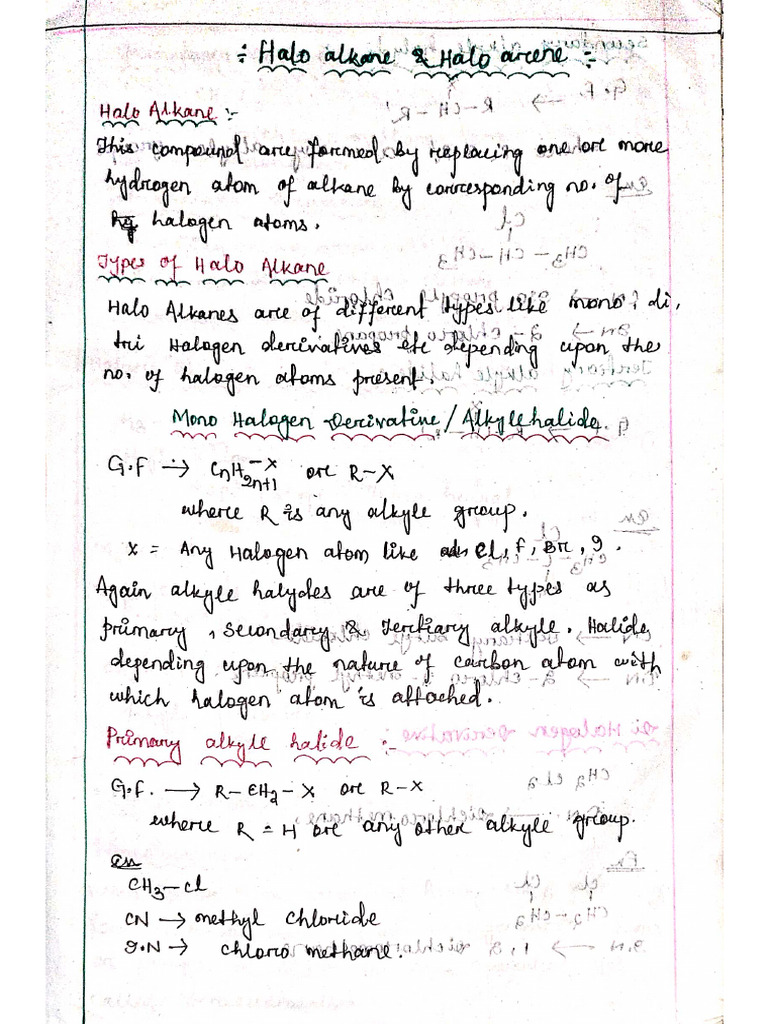 ÷ Halo alkane & Halo arene ÷
Halo Alkane :-
This compound are formed by replacing one or more
hydrogen atom of alkane by corresponding no. of
halogen atoms.
Types of Halo Alkane
Halo Alkanes are of different types like mono, di,
tri Halogen derivatives etc depending upon the
no. of halogen atoms present.
Mono Halogen Derivative / Alkyle halide.
G.F → CnH2n+1–X or R–X
where R is any alkyle group.
X = Any Halogen atom like Cl, F, Br, I.
Again alkyle halydes are of three types as
primary, secondary & Tertiary alkyle. Halide
depending upon the nature of carbon atom with
which halogen atom is attached.
Primary alkyle halide :-
G.F. → R–CH2–X or R–X
where R = H or any other alkyle group.
Ex
CH3–Cl
CN → methyl chloride
I.N → chloro methane.